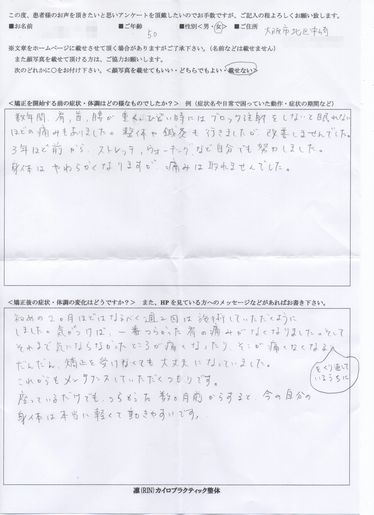 この度、患者様のお声を頂きたいと思いアンケートを頂戴したいのでお手数ですが、ご記入の程よろしくお願い致します。
■お名前 ■ご年齢 50 ■性別＜男・女＞ ■ご住所 大阪市北区中崎
※文章をホームページに載せさせて頂く場合がありますがご了承下さい。（名前などは載せません）
また顔写真を載せて頂ける方は、ご協力お願いします。
次のどれかに○をお付け下さい。＜顔写真を載せてもいい・どちらでもよい・載せない＞
＜矯正を開始する前の症状・体調はどの様なものでしたか？＞ 例（症状名や日常で困っていた動作・症状の期間など）
数年間、肩、首、腰が重くひどい時にはブロック注射をしないと眠れない
ほどの痛みもありました。整体や鍼灸も行きましたが改善しませんでした。
3年ほど前から、ストレッチ、ウォーキングなど自分でも努力しました。
身体はやわらかくなりますが、痛みは取れませんでした。
＜矯正後の症状・体調の変化はどうですか？＞ また、HPを見ている方へのメッセージなどがあればお書き下さい。
初めの2ヵ月ほどはなるべく週2回は施術していただくように
しました。気がつけば、一番つらかった肩の痛みがなくなりました。そして
それまで気にならなかったところが痛くなったり、そこが痛くなくなる
をくり返して
いるうちに
だんだん、矯正を受けなくても大丈夫になっていました。
これからもメンテナンスしていただくつもりです。
座っているだけでも、つらかった数ヵ月前からすると、今の自分の
身体は本当に軽くて動きやすいです。
凛(RIN)カイロプラクティック整体